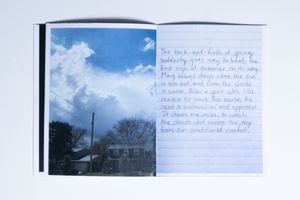 The back-and-forth of spring
suddenly gives way to heat, the
first sign of summer on its way.
May brings days when the sun
is too hot and even the shade
is warm. After a year with little
reason to leave the house, the
heat is and oppressive.
It chases me inside, to watch
the clouds dot across the sky
from air-conditioned comfort.